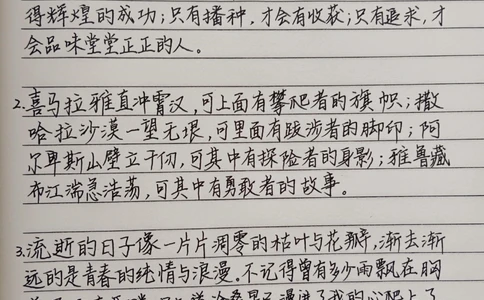 得辉煌的成功;只有播种,才会有收获;只有追求,才
会品味堂堂正正的人。
2.喜马拉雅直冲霄汉,可上面有攀爬者的旗帜;撒
哈拉沙漠一望无垠,可里面有跋涉者的脚印;阿
尔卑斯山壁立千仞,可其中有探险者的身影;雅鲁藏
布江湍急浩荡,可其中有勇敢者的故事。
3.流逝的日子像一片片凋零的枯叶与花瓣,渐去渐
远的是青春的纯情与浪漫,不记得曾有多少雨飘在胸